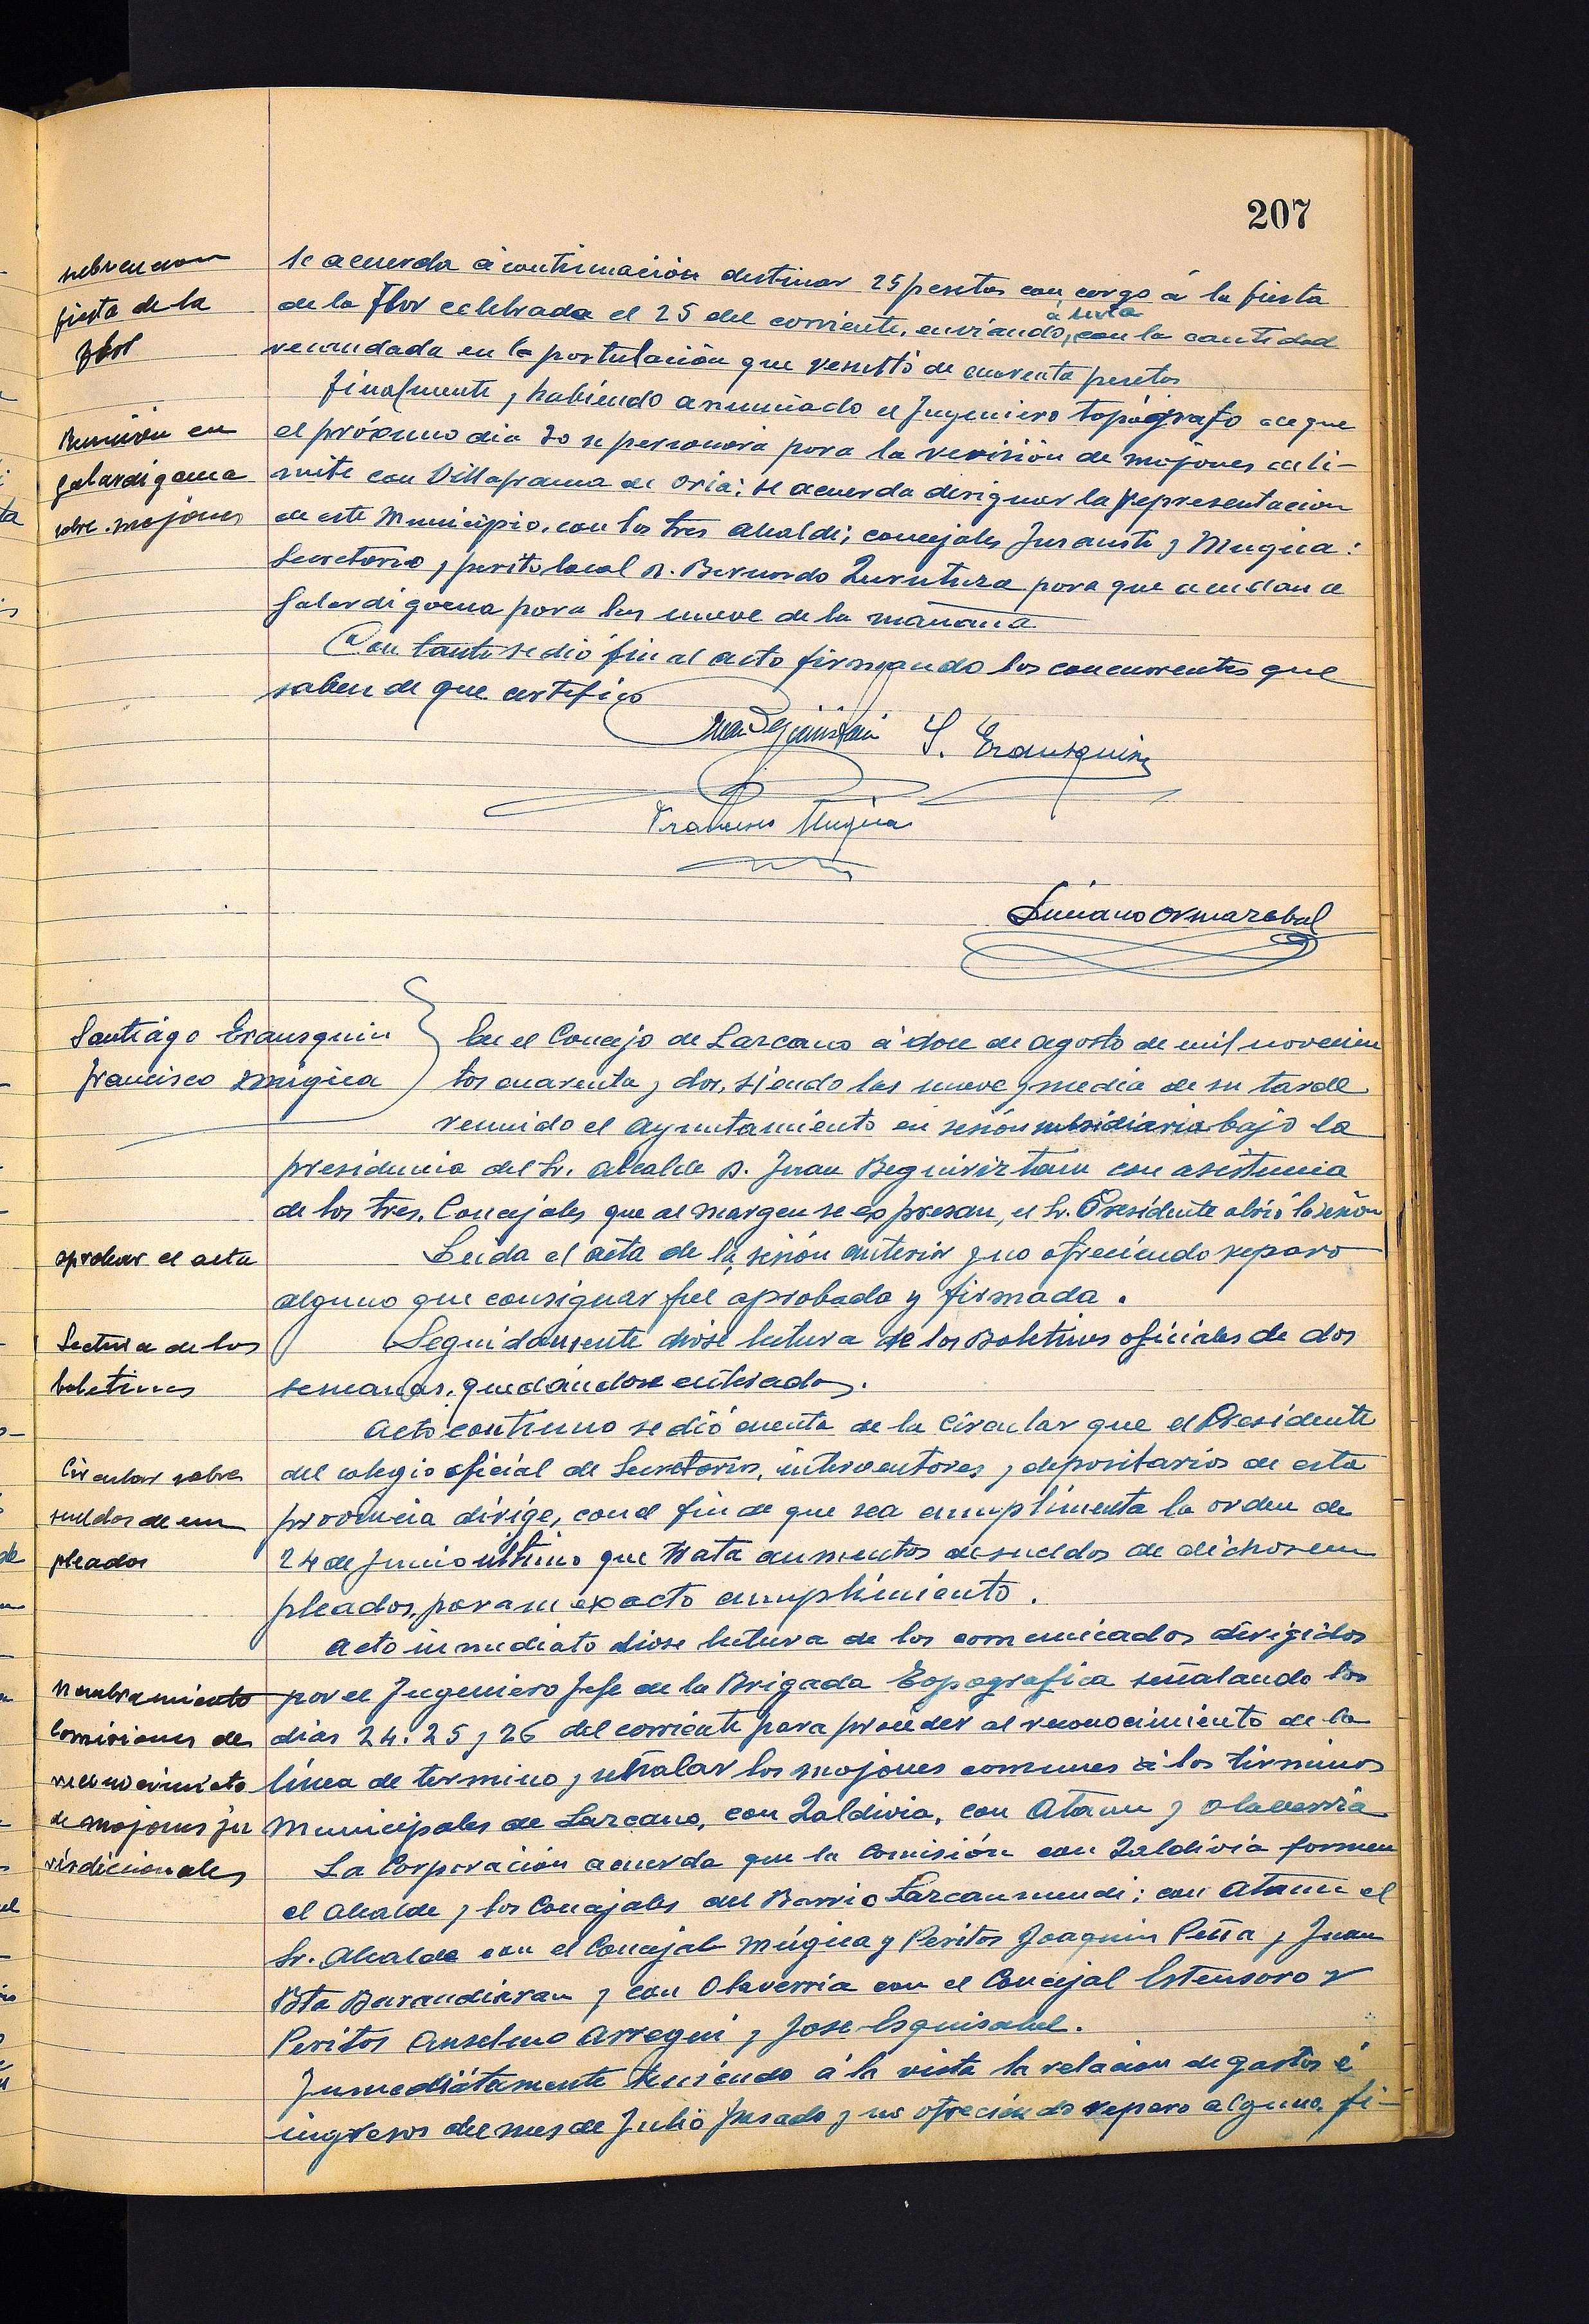 207
subvencion
fiesta de la
Flor
se acuerda á continuación destinar 25 pesetas con cargo á la fiesta
de la Flor celebrada el 25 del corriente, enviando, con la cantidad
recaudada en la postulación que resultó de cuarenta pesetas
Reunión en
galardi goena
sobre mojones
Finalmente, habiendo anunciado el Ingeniero topógrafo de que
el próximo dia 30 se personará para la revisión de mojones en li-
mite con Villafranca de Oria: se acuerda designar la representacion
de este Municipio, con los tres alcalde; concejales Insausti y Mugica:
Secretario y perito local D. Bernardo Zurutuza para que acudan a
Galardi goena para las nueve de la mañana
Con tanto se dió fin al acto firmando los concurrentes que
saben de que certifico
S. Erausquin
Francisco Mugica
Luciano Ormazabal
Santiago Erausquin
Francisco Múgica
En el Concejo de Lazcano á doce de agosto de mil novecien
tos cuarenta y dos, siendo las nueve y media de su tarde
reunido el Ayuntamiento en sesión subsidiaria bajo la
presidencia del Sr. Alcalde D. Juan Beguiristain con asistencia
de los tres. Concejales que al margen se expresan, el Sr. Presidente abrió la sesión
aprobar el acta
Leida el acta de la sesión anterior y no ofreciendo reparo
alguno que consignar fué aprobada y firmada.
Lectura de los
boletines
Seguidamente dióse lectura de los Boletines oficiales de dos
semanas, quedándose enterados.
Acto contínuo se dió cuenta de la Circular que el Presidente
Circular sobre
sueldos de em
pleados
del colegio oficial de Secretarios, interventores y depositarios de esta
provincia dirige, con el fin de que sea cumplimenta la orden de
24 de Junio último que trata aumentos de sueldos de dichos em
pleados, para su exacto cumplimiento.
Acto inmediato dióse lectura de los comunicados dirigidos
Nombramiento
Comisiones de
reconocimiento
de mojones ju
risdiccionales
por el Ingeniero Jefe de la Brigada Topografica señalando los
dias 24. 25 y 26 del corriente para proceder al reconocimiento de la
línea de termino y señalar los mojones comunes á los términos
Municipales de Lazcano, con Zaldivia, con Ataun y Olaverria
La Corporación acuerda que la Comisión con Zaldivia formen
el Alcalde y los Concejales del Barrio Lazcanmendi: con Ataun el
Sr. Alcalde con el Concejal Múgica y Peritos Joaquin Peña y Juan
Bta Barandiaran y con Olaverria con el Concejal Estensoro y
Peritos Anselmo Arregui y Jose Esquisabel.
Inmediátamente teniendo á la vista la relacion de gastos é
ingresos del mes de Julio pasado y no ofreciendo reparo alguno, fi-